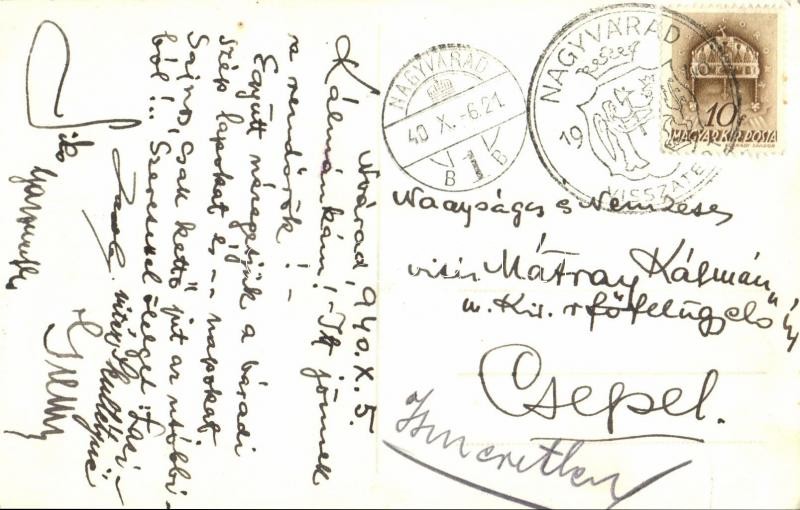 N.várad, 940. X. 5.
Kálmánkám! - Itt jönnek
a rendőrök! -
Együtt nézegetjük a váradi
szép lapokat és -- napokat.
Sajnos, csak kettő jut az utóbbi-
ból!.. Szeretettel ölelget: Laci -
NAGYVÁRAD
40 X. -6. 21
B 1 B
NAGYVÁRAD
19
VISSZATÉ
10 f
MAGYAR KIR. POSTA
Nagyságos és Nemzetes
vitéz Mátray Kálmán
m. kir. főfelügyelő úr
Csepel.
Ismeretlen